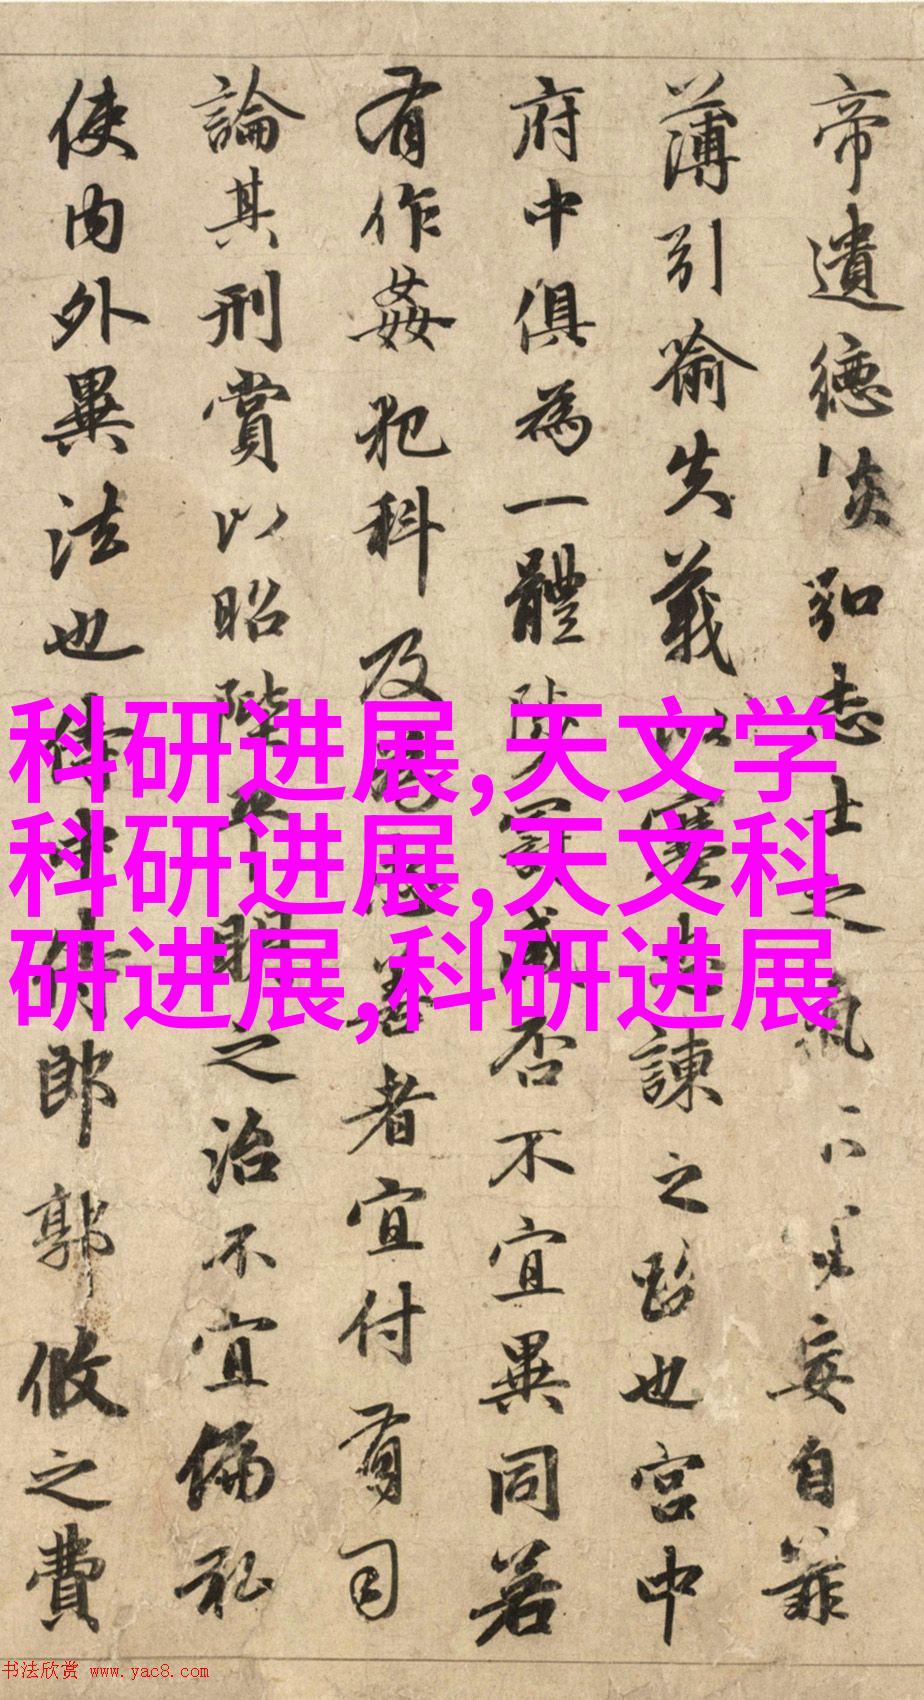 帝遺德恢弘志士之氣不宜妄自菲
薄引喻失義以塞忠諫之路也宮中
府中俱為一體陟罰臧否不宜異同若
有作姦犯科及為忠善者宜付有司
論其刑賞以昭陛平明之治不宜偏私
使內外異法也侍中侍郎郭攸之費
科研进展,天文学
科研进展,天文科
研进展,科研进展
书法欣赏 www.yac8.com